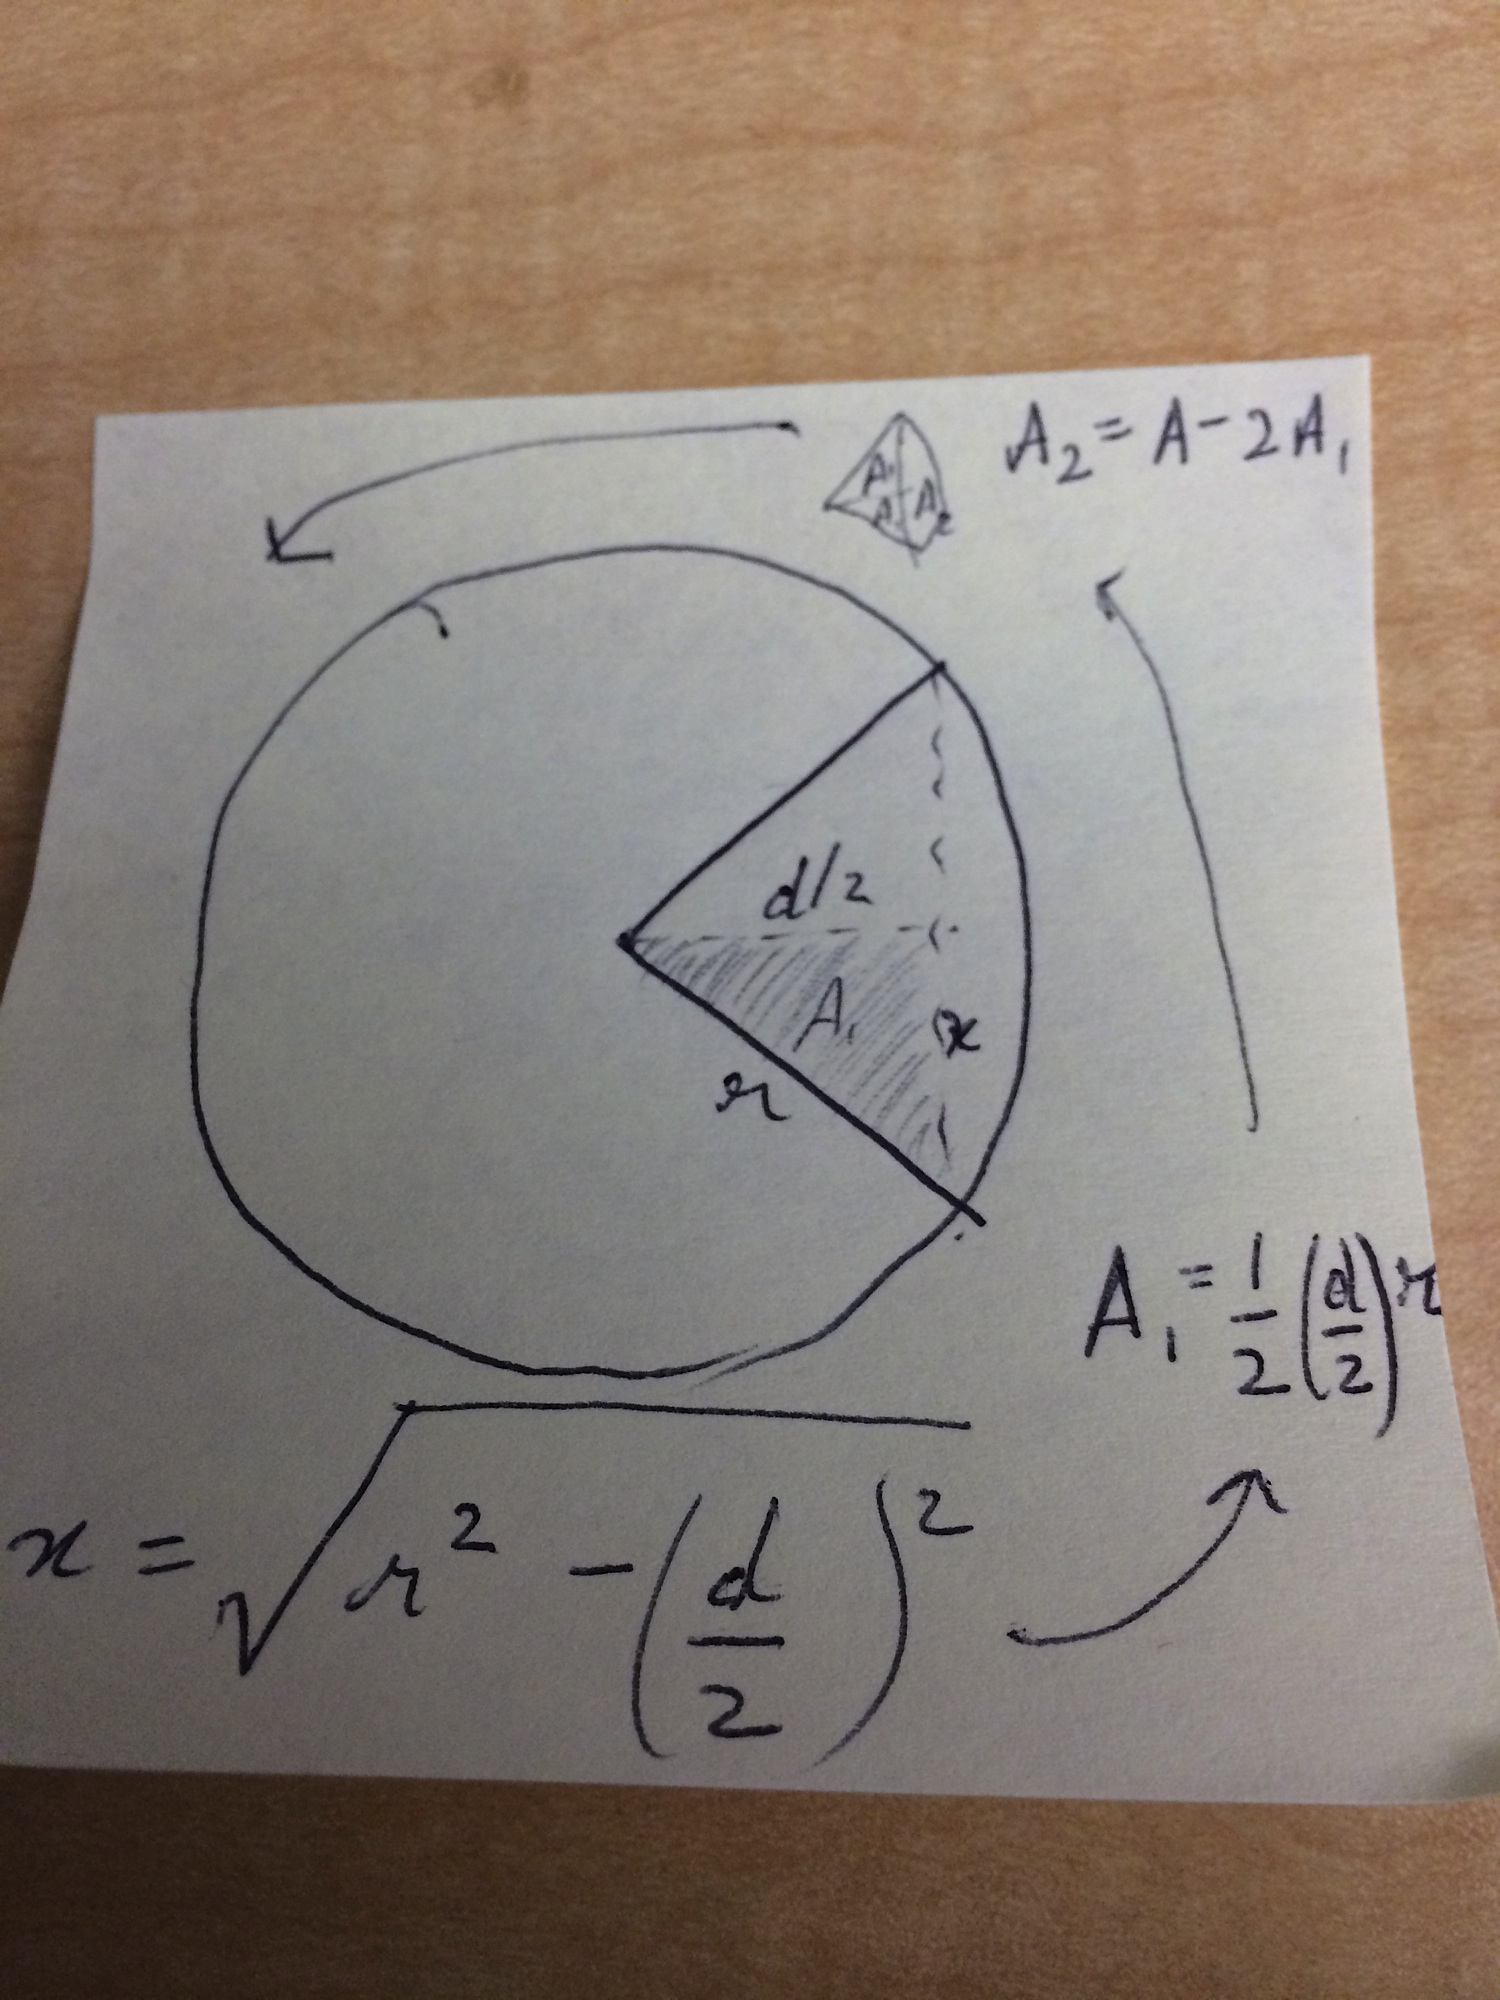 A₂ = A - 2A₁
A₁
A₁
A₂
d/2
A₁
x
r
A₁ = 1/2 (d/2) x
x = √(r² - (d/2)²)